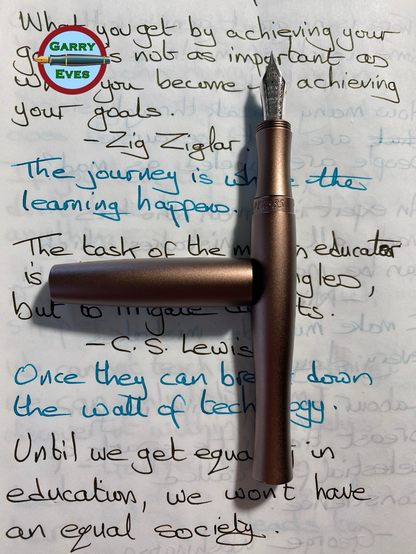 GARRY
EVES
What you get by achieving your
g s not as important as
you become achieving
your goals.
- Zig Ziglar.
The journey is the
learning happens.
The task of the m n educator
is ngles,
but to irrigate ts.
- C. S. Lewis
Once they can bre down
the wall of tech ogy.
Until we get equa in
education, we won't have
an equal society.